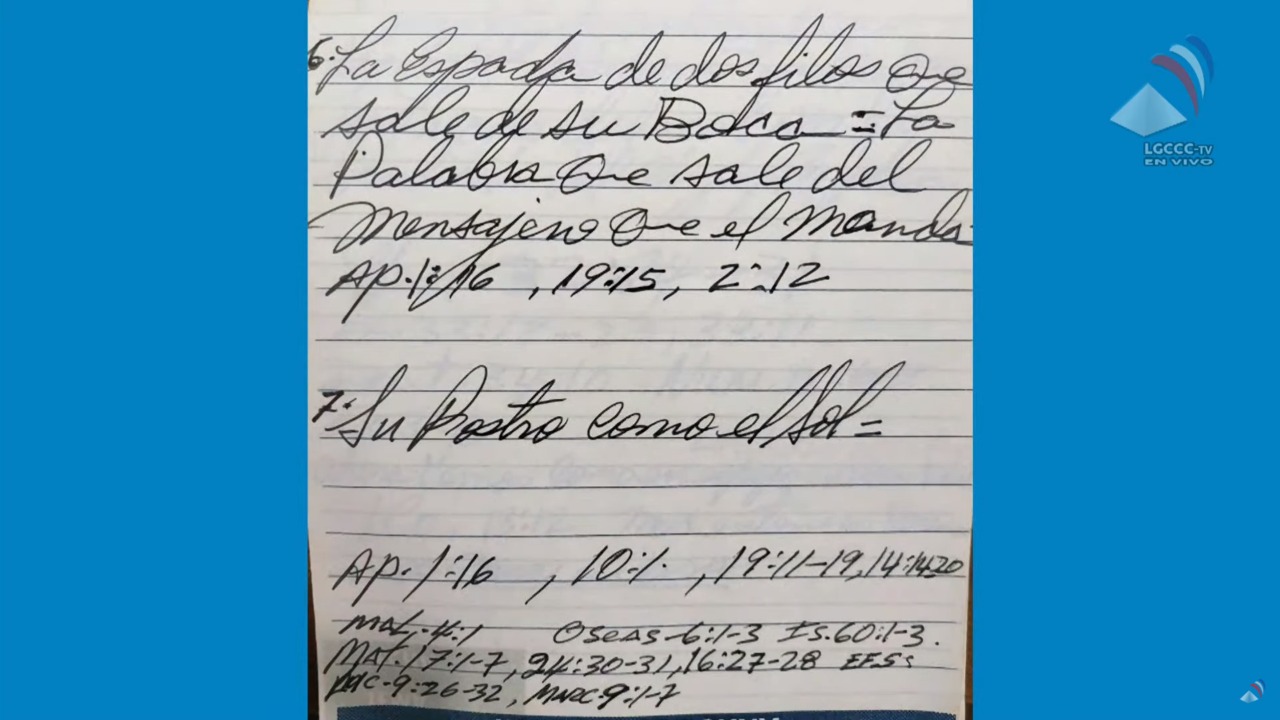 6. La Espada de dos filos Que
sale de su Boca = La
Palabra Que sale del
Mensajero Que el Manda
AP. 1:16 , 19:15, 2:12
7. Su Rostro como el Sol =
AP. 1:16 , 10:1. , 19:11-19, 14:14-20
MAL. 4:1 OSEAS-6:1-3 Is.60:1-3.
MAT. 17:1-7, 24:30-31, 16:27-28 EF.5:
Luc-9:26-32, MARC-9:1-7
LGCCC-TV
EN VIVO